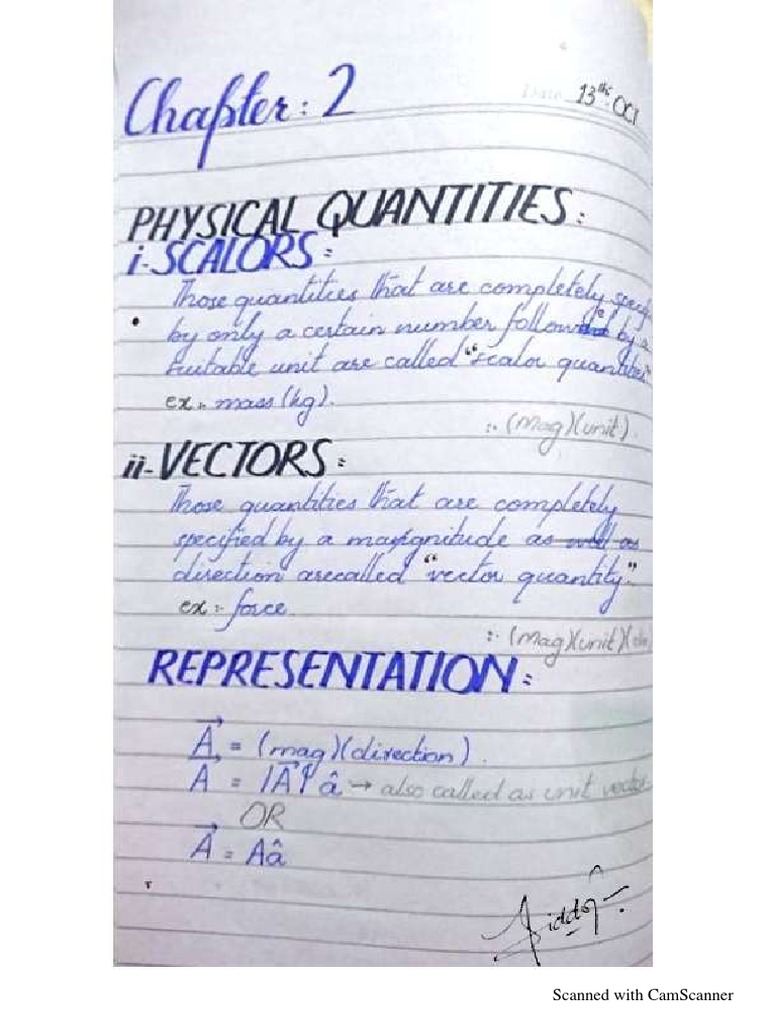 Chapter: 2
Date 13th OCT
PHYSICAL QUANTITIES:
i-SCALORS:
Those quantities that are completely
by only a certain number followed by a
suitable unit are called "scalor quantities
ex:- mass (kg).
:. (mag)(unit).
ii-VECTORS:
Those quantities that are completely
specified by a magnitude as well as
direction arecalled "vector quantity"
ex:- force
:. (mag)(unit)(
REPRESENTATION:
A⃗ = (mag)(direction).
A⃗ = |A⃗| â → also called as unit vector
OR
A⃗ = Aâ
Scanned with CamScanner